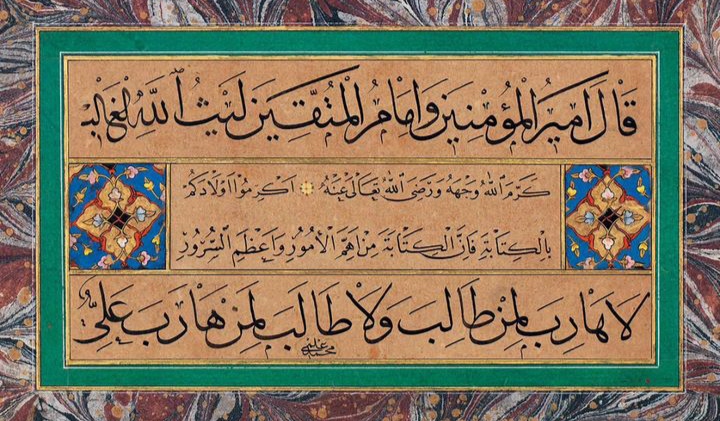 قَالَ اَمِيرُ الْمُؤْمِنِينَ وَاِمَامُ الْمُتَّقِينَ لَيْثُ اللّٰهِ الْغَالِبْ
كَرَّمَ اللّٰهُ وَجْهَهُ وَرَضِىَ اللّٰهُ تَعَالٰى عَنْهُ اَكْرِمُوا اَوْلَادَكُمْ
بِالْكِتَابَةِ فَاِنَّ الْكِتَابَةَ مِنْ اَهَمِّ الْاُمُورِ وَاَعْظَمِ السُّرُورِ
لَا هَارِبَ لِمَنْ طَالِبَ وَلَا طَالِبَ لِمَنْ هَارَبَ عَلِيٌّ
محمد